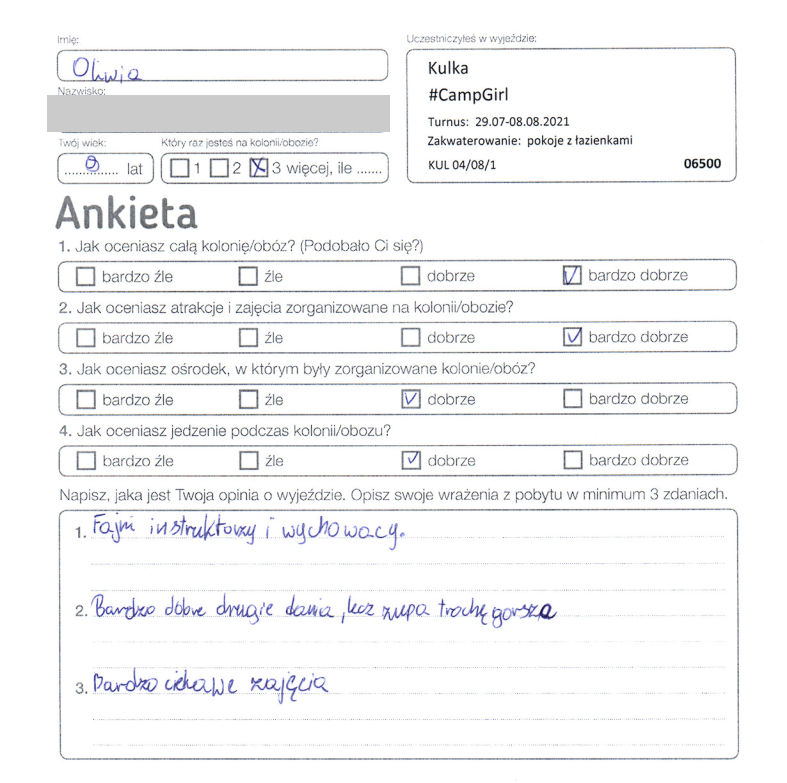 Imię:
Oliwia
Nazwisko:
Twój wiek:
lat
Który raz jesteś na kolonii/obozie?
1 2 3 więcej, ile .......
Uczestniczyłeś w wyjeździe:
Kulka
#CampGirl
Turnus: 29.07-08.08.2021
Zakwaterowanie: pokoje z łazienkami
KUL 04/08/1 06500
Ankieta
1. Jak oceniasz całą kolonię/obóz? (Podobało Ci się?)
bardzo źle źle dobrze bardzo dobrze
2. Jak oceniasz atrakcje i zajęcia zorganizowane na kolonii/obozie?
bardzo źle źle dobrze bardzo dobrze
3. Jak oceniasz ośrodek, w którym były zorganizowane kolonie/obóz?
bardzo źle źle dobrze bardzo dobrze
4. Jak oceniasz jedzenie podczas kolonii/obozu?
bardzo źle źle dobrze bardzo dobrze
Napisz, jaka jest Twoja opinia o wyjeździe. Opisz swoje wrażenia z pobytu w minimum 3 zdaniach.
1. Fajni instruktorzy i wychowacy.
2. Bardzo dobre drugie dania, lecz zupa trochę gorsza
3. Bardzo ciekawe zajęcia